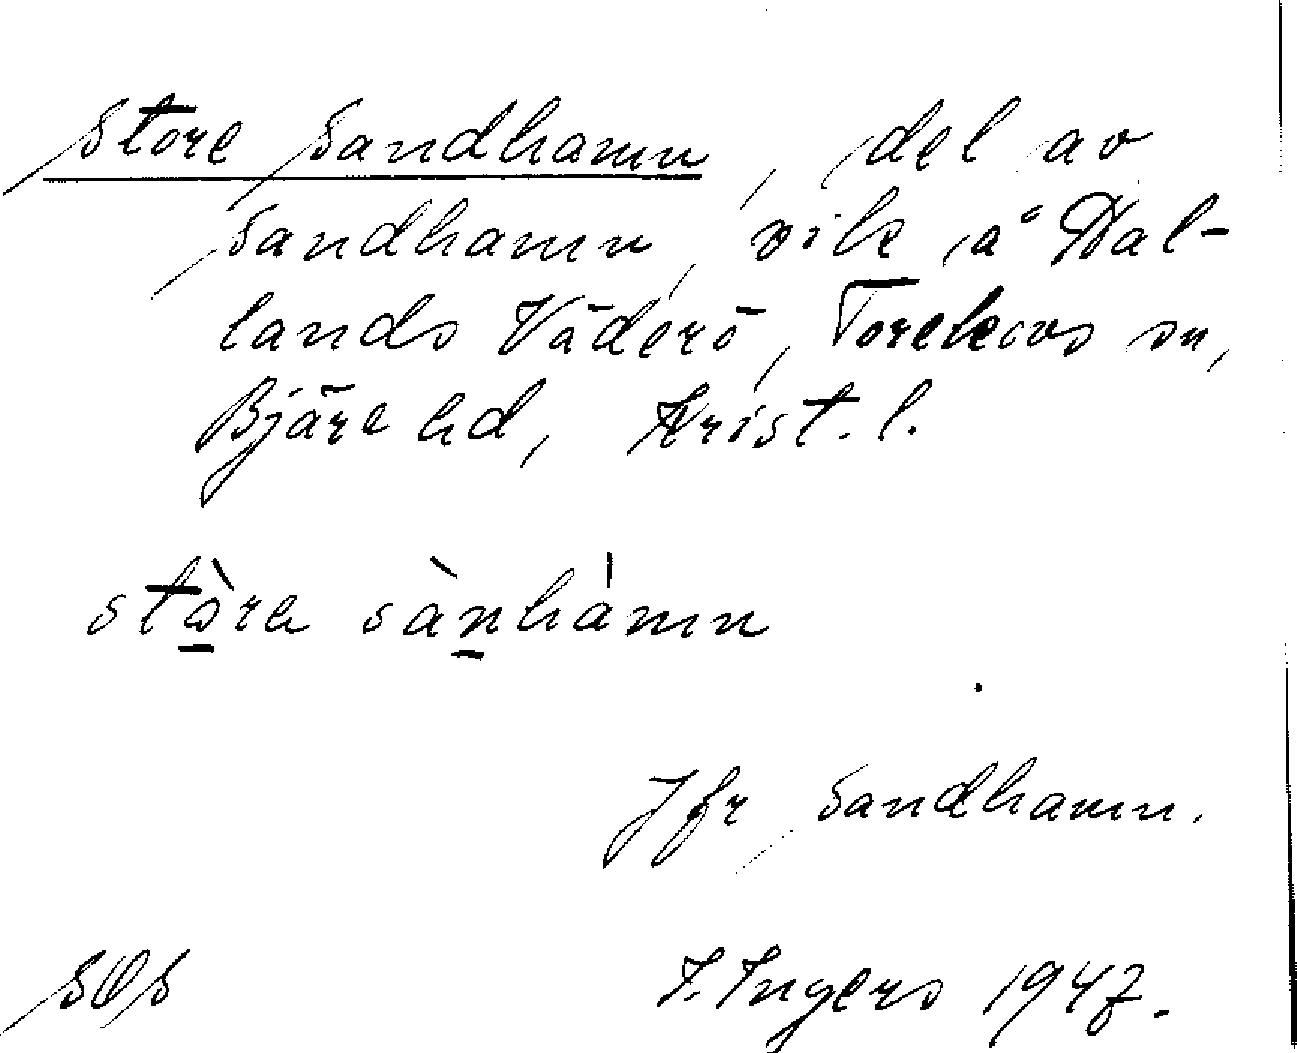 Store Sandhamn, del av
Sandhamn, vik å Hal-
lands Väderö, Torekovs sn,
Bjäre hd, Krist. l.
stò̱re sàṉhàmn
Jfr Sandhamn.
SOS I. Ingers 1947.